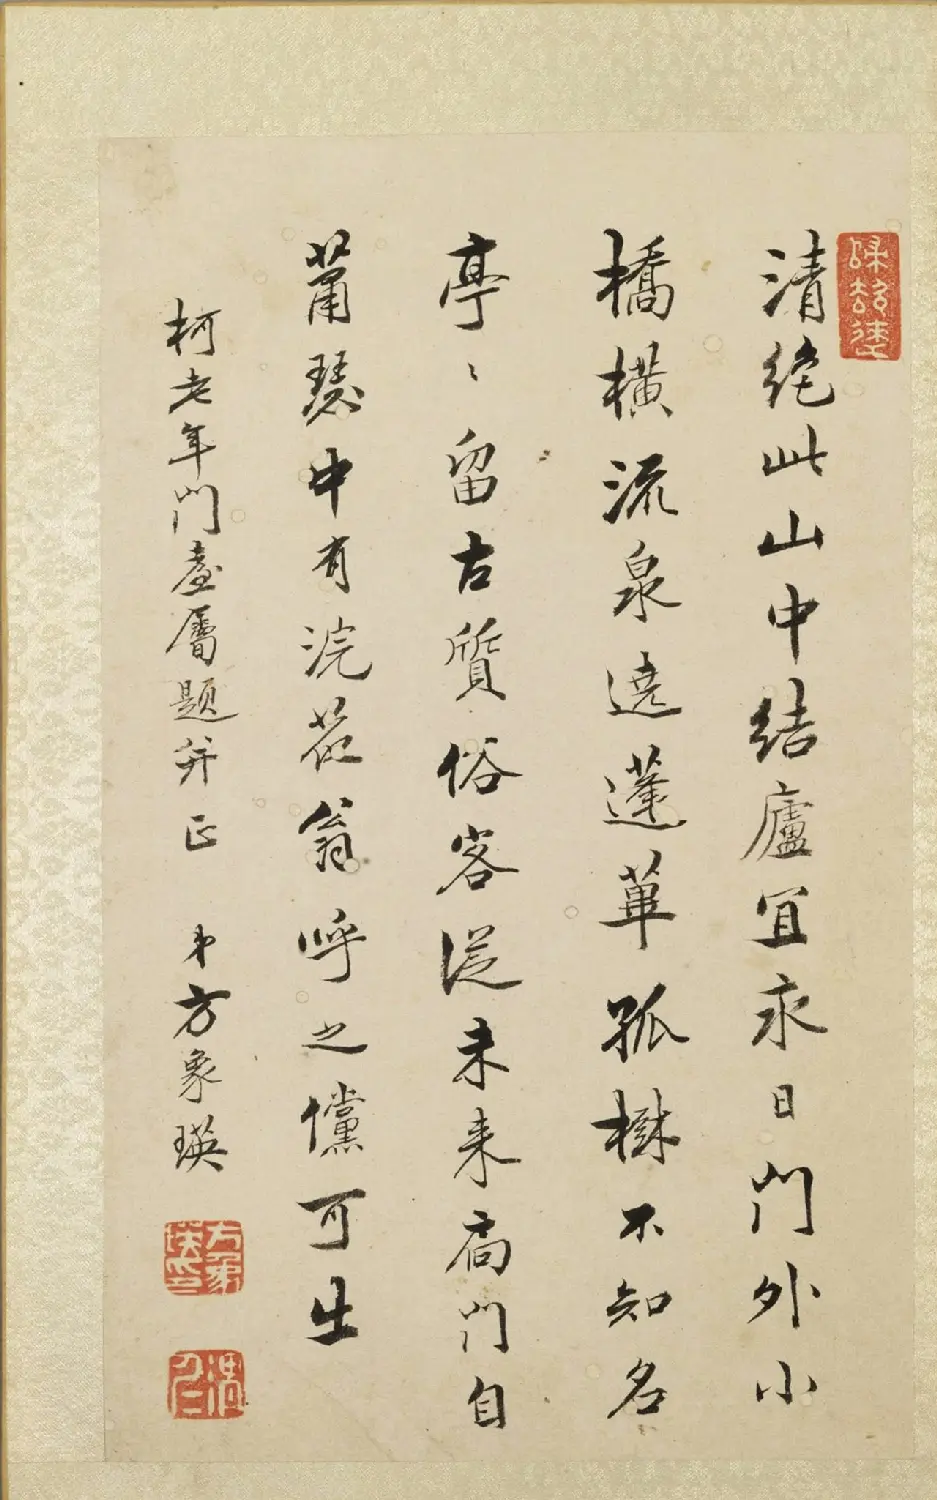 清絶此山中結廬宜永日門外小
橋橫流泉遶蓬蓽孤樹不知名
亭〻留古質俗客從未来扃門自
蕭瑟中有浣花翁呼之儻可出
柯老年門臺屬題并正 弟方象瑛
方象瑛印